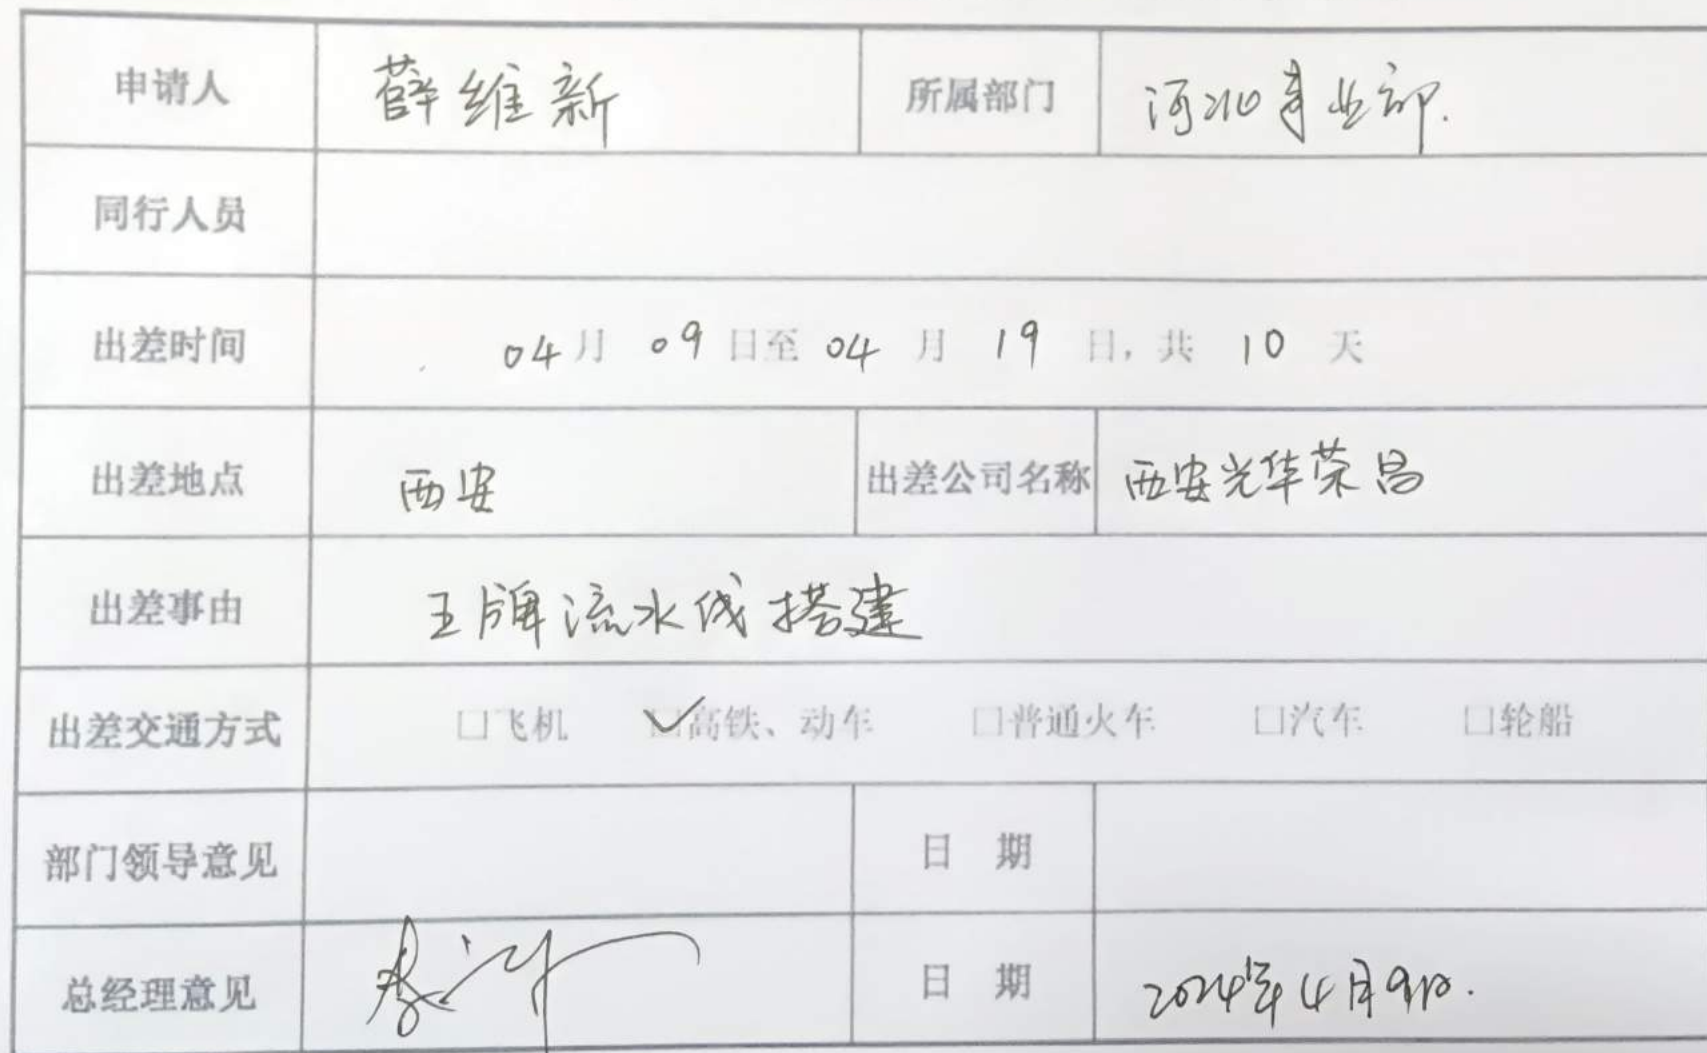 申请人 薛维新 所属部门 河北事业部.
同行人员
出差时间 04月 09日至 04 月 19 日，共 10 天
出差地点 西安 出差公司名称 西安光华荣昌
出差事由 王牌流水线搭建
出差交通方式 □飞机 ☑高铁、动车 □普通火车 □汽车 □轮船
部门领导意见 日 期
总经理意见 日 期 2024年4月9日.